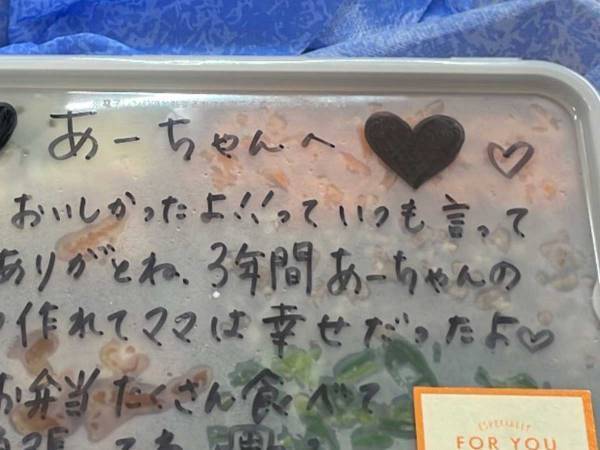 あーちゃんへ
おいしかったよ!!って いつも 言って
ありがとね、3年間 あーちゃんの
作れて ママは 幸せだったよ♡
お弁当 たくさん 食べて
ESPECIALLY
FOR YOU